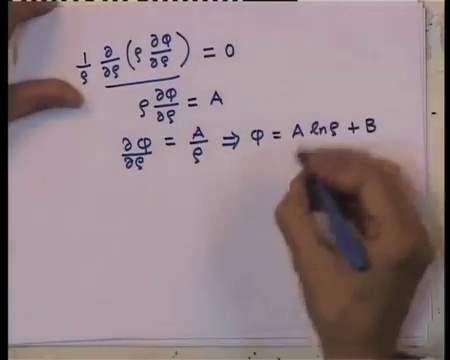 1/ρ ∂/∂ρ (ρ ∂φ/∂ρ) = 0
ρ ∂φ/∂ρ = A
∂φ/∂ρ = A/ρ ⇒ φ = A lnρ + B